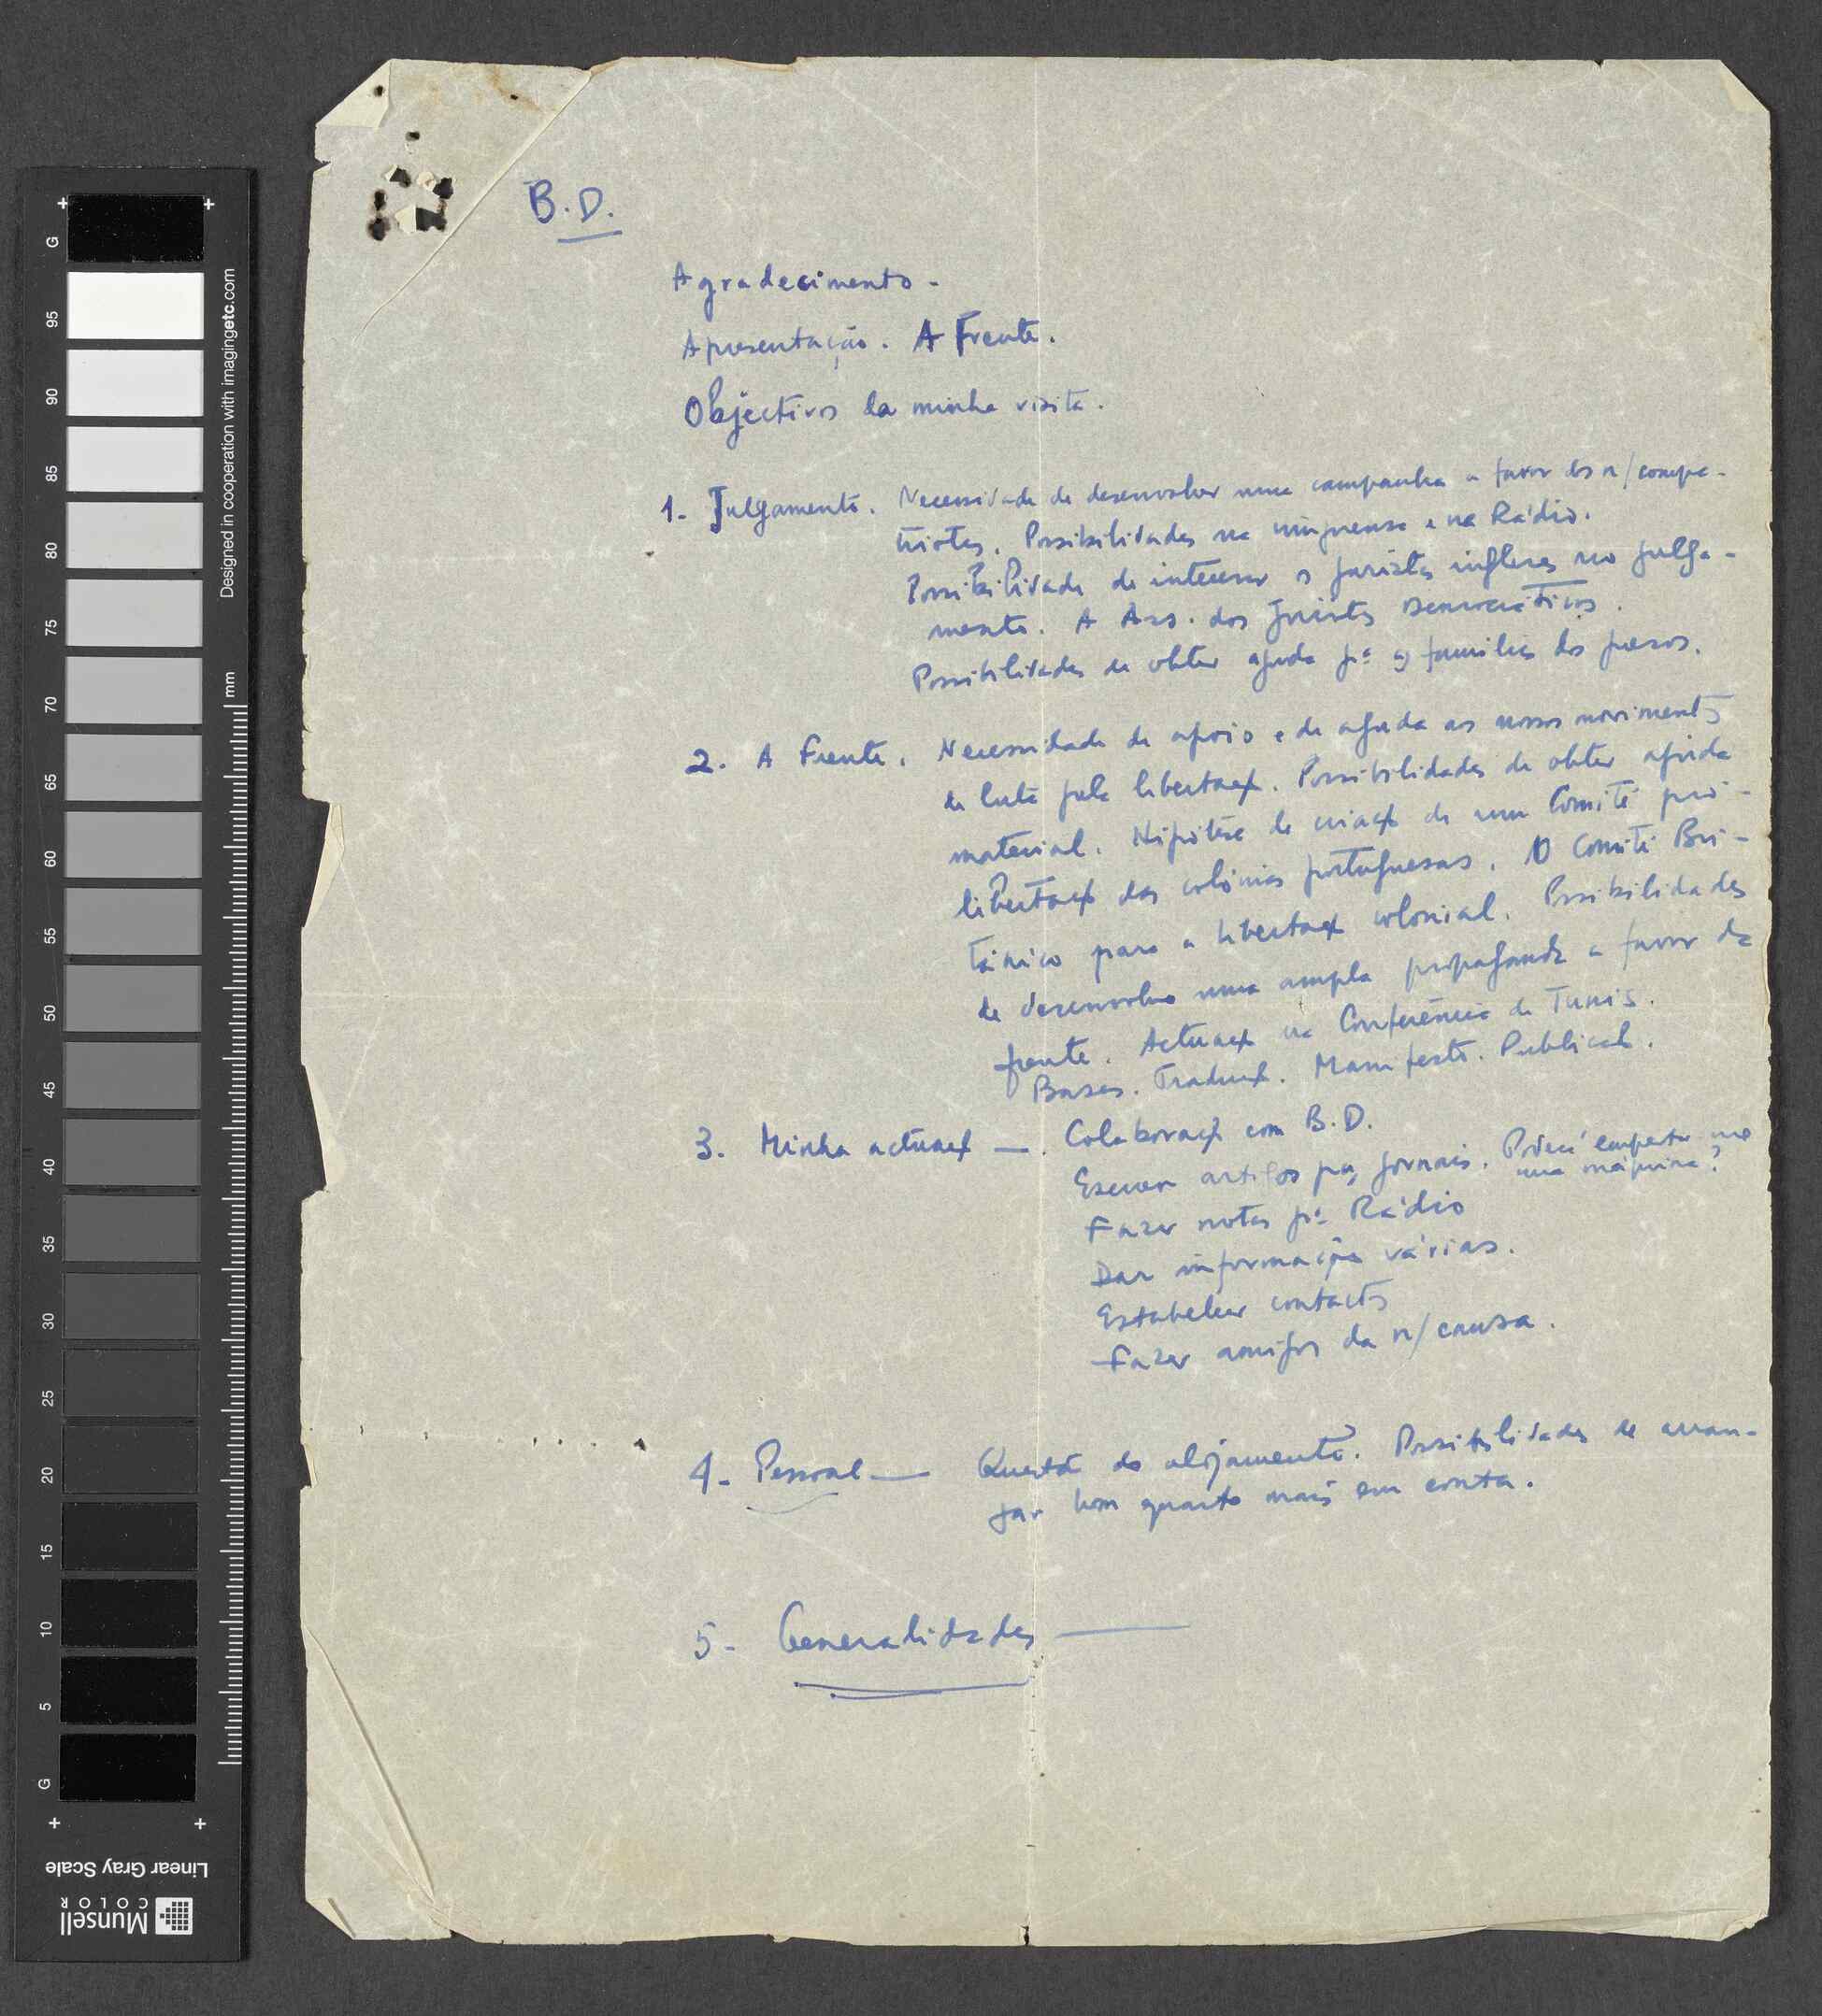 B.D.
Agradecimento -
Apresentação. A Frente.
Objectivos da minha visita.
1- Julgamento. Necessidade de desenvolver uma campanha a favor dos n/compa-
triotas. Possibilidades na imprensa e na Rádio.
Possibilidade de interessar os juristas ingleses no julga-
mento. A Ass. dos Juristas Democráticos.
Possibilidades de obter ajuda pª as famílias dos presos.
2. A Frente. Necessidade de apoio e de ajuda aos nossos movimentos
de luta pela libertaç. Possibilidades de obter ajuda
material. Hipótese de criaç de um Comité pró-
libertaç das colónias portuguesas. O Comité Bri-
tânico para a libertaç colonial. Possibilidades
de desenvolver uma ampla propaganda a favor da
frente. Actuaç na Conferência de Tunis.
Bases. Traduç. Manifesto. Publicaç.
3. Minha actuaç — . Colaboraç com B.D.
Escrever artigos pª jornais. Poderá emprestar-me
uma máquina?
Fazer notas pª Rádio
Dar informações várias.
Estabelecer contactos
Fazer amigos da n/causa.
4- Pessoal — Questão do alojamento. Possibilidades de arran-
jar um quarto mais em conta.
5- Generalidades —
Designed in cooperation with imagingetc.com
mm
G 95 90 85 80 75 70 65 60 55 50 45 40 35 30 25 20 15 10 5 G
Linear Gray Scale
Munsell
COLOR